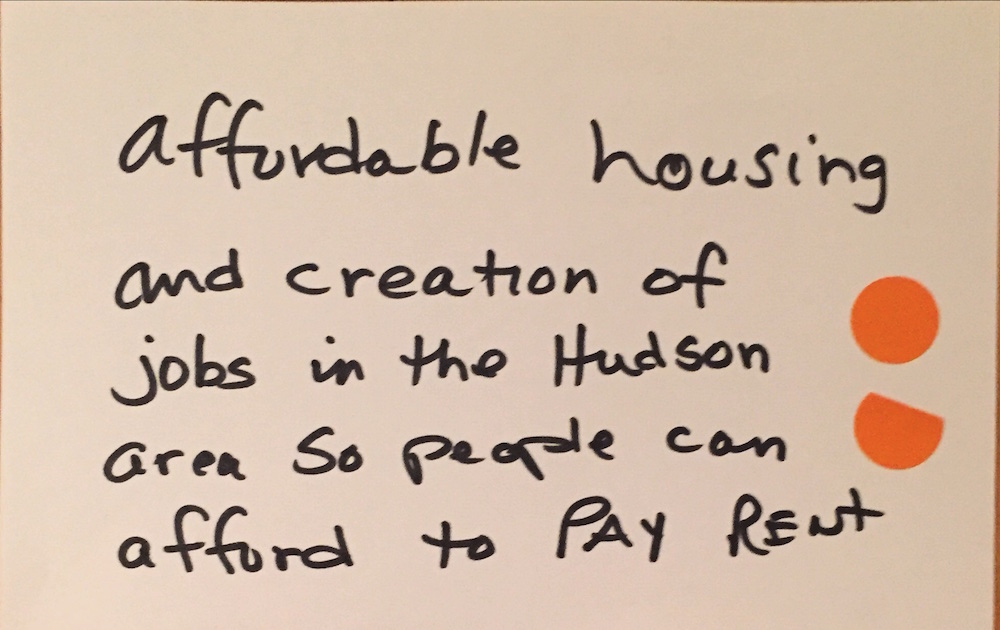 affordable housing
and creation of
jobs in the Hudson
area So people can
afford to PAY RENt